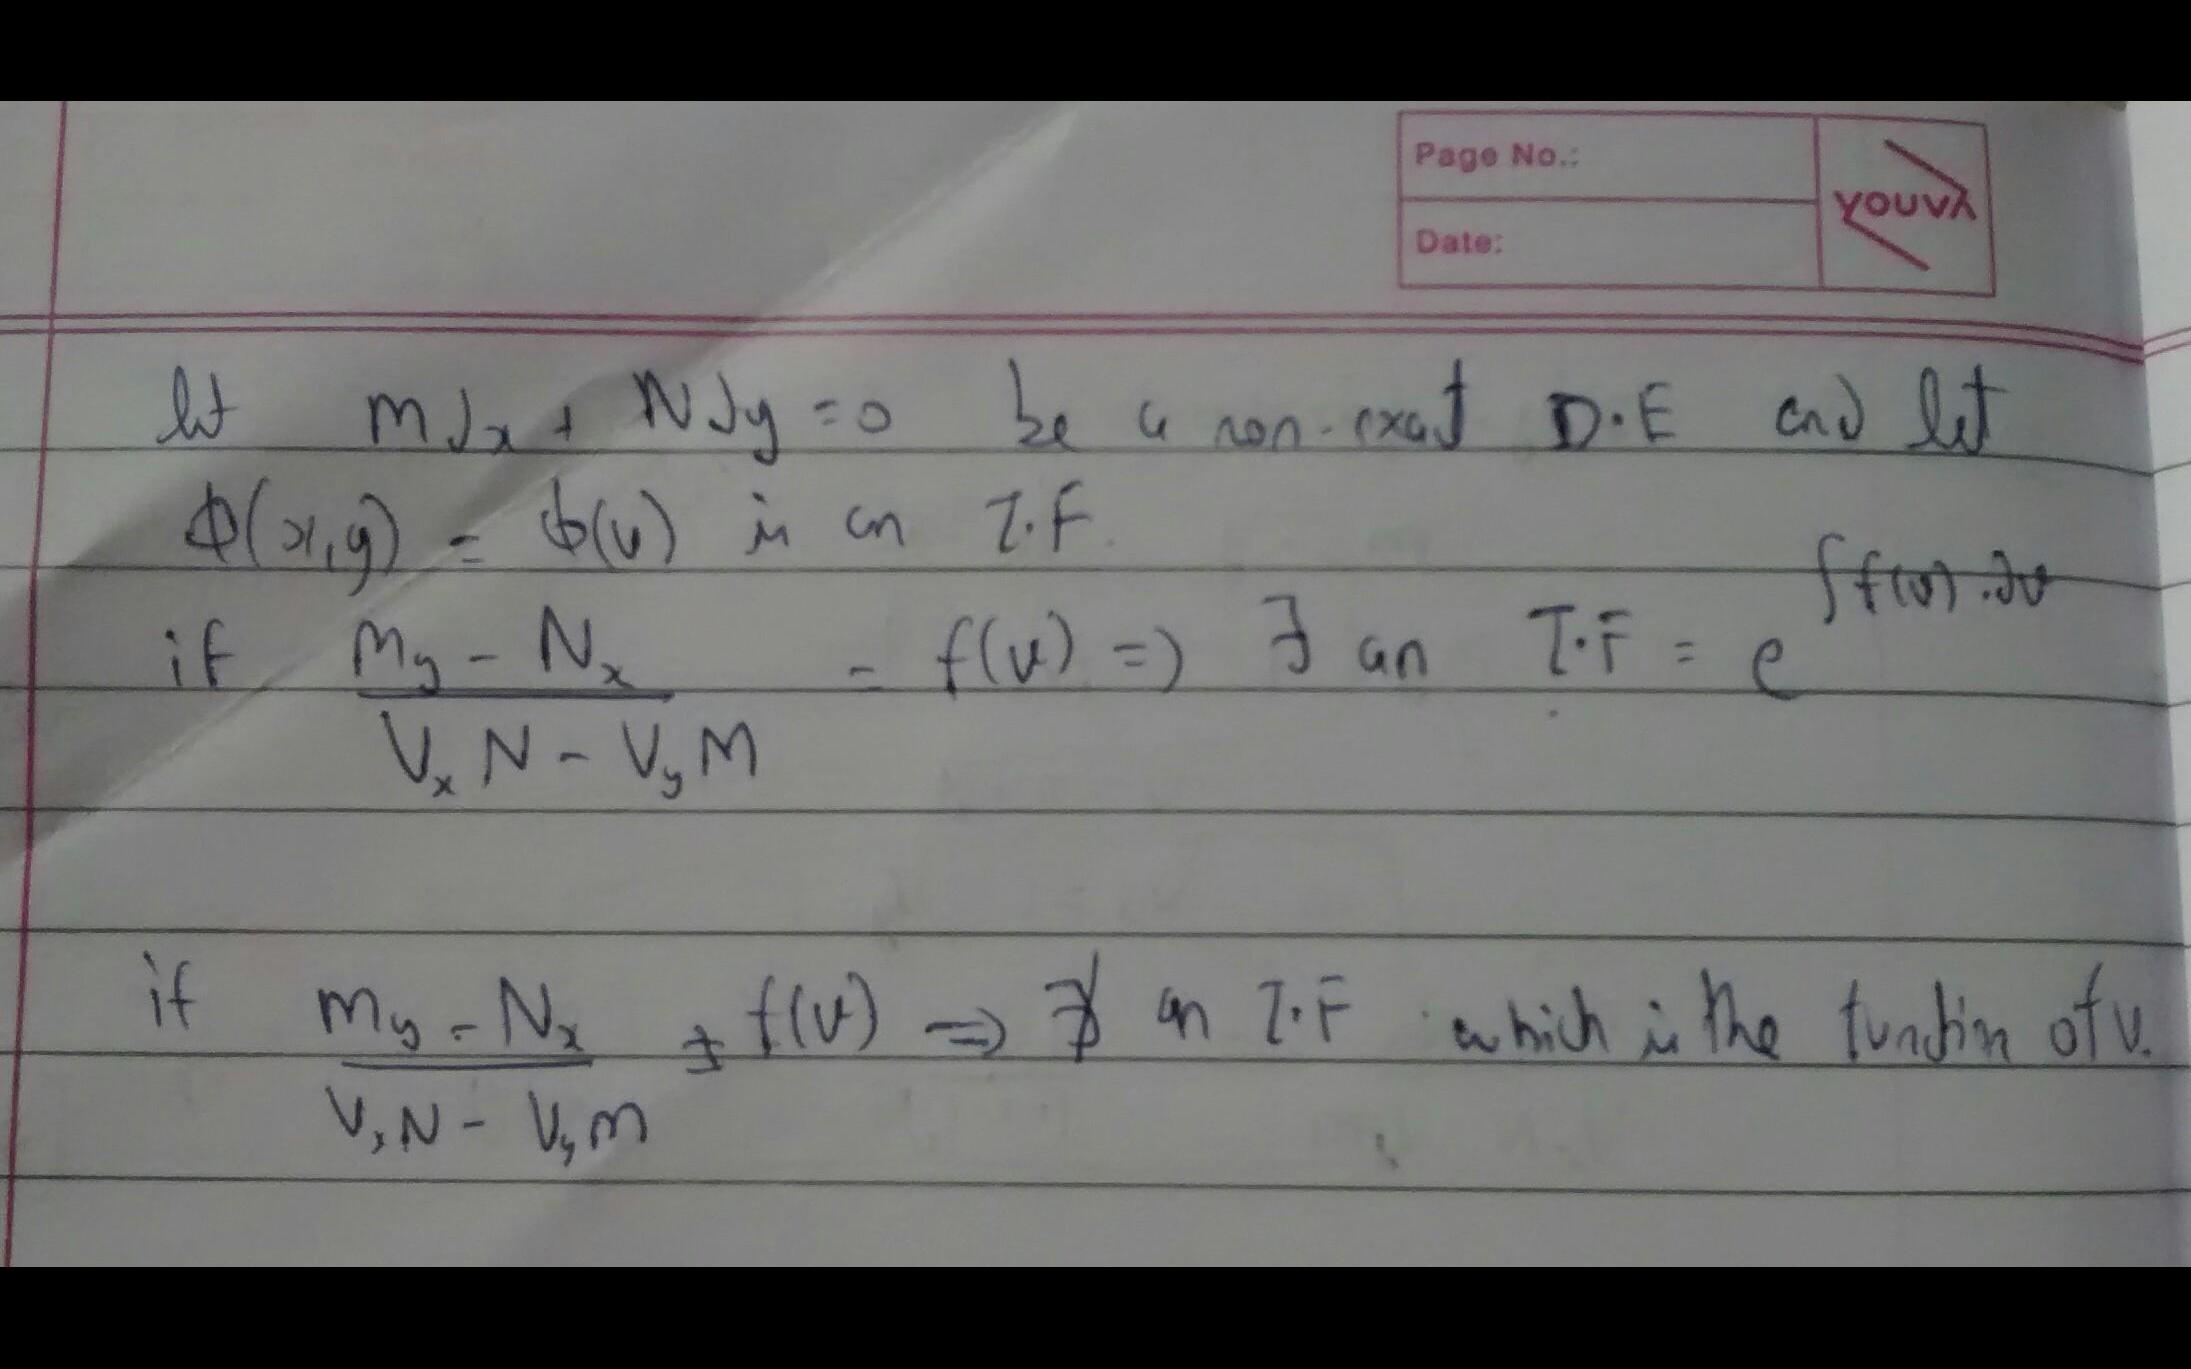 Page No.:
Date:
YOUVA
let Mdx + Ndy = 0 be a non-exact D.E and let
ϕ(x,y) = ϕ(v) is an I.F.
if (My - Nx)/(Vx N - Vy M) = f(v) => ∃ an I.F = e^∫f(v).dv
if (My - Nx)/(Vx N - Vy M) ≠ f(v) => ∄ an I.F which is the function of v.